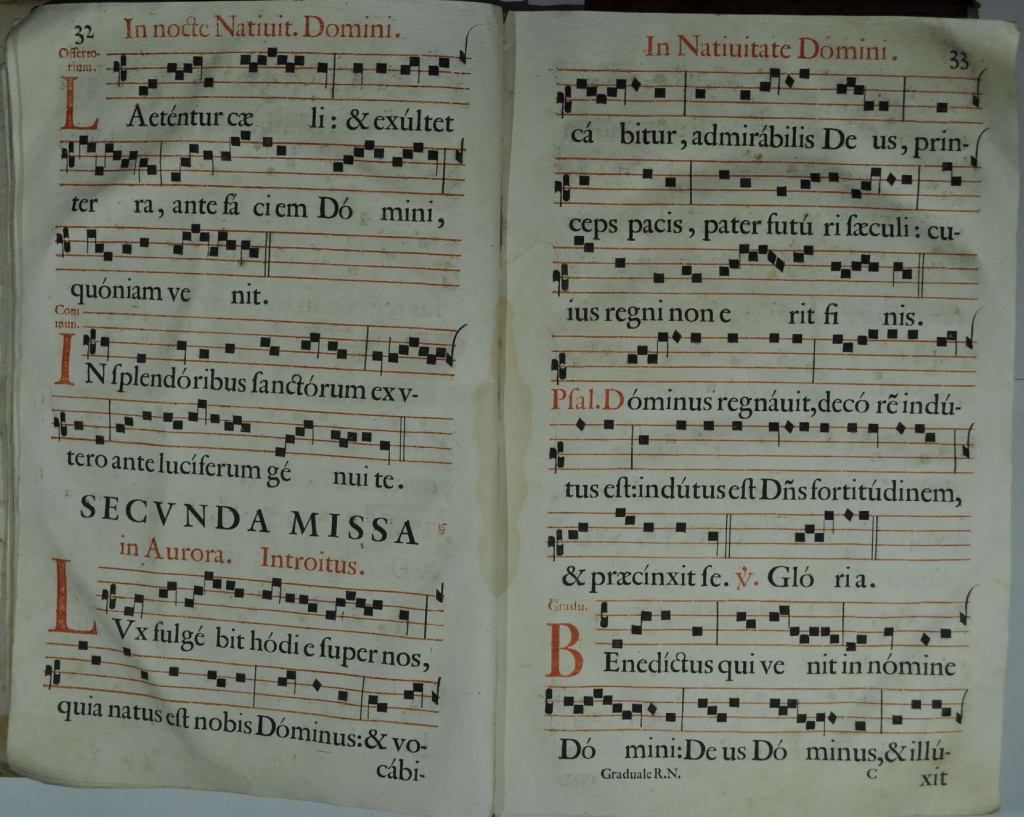 32 In nocte Natiuit. Domini.
Offerto-
rium.
LAeténtur cæ li : & exúltet
ter ra, ante fá ciem Dó mini,
quóniam ve nit.
Com
mun.
IN ſplendóribus ſanctórum ex v-
tero ante lucíferum gé nui te.
SECVNDA MISSA
in Aurora. Introitus.
LVx fulgé bit hódi e ſuper nos,
quia natus eſt nobis Dóminus: & vo-
cábi-
In Natiuitate Domini. 33
cá bitur, admirábilis De us, prin-
ceps pacis, pater futú ri ſæculi : cu-
ius regni non e rit fi nis.
Pſal. Dóminus regnáuit, decó rẽ indú-
tus eſt: indútus eſt Dñs fortitúdinem,
& præcínxit ſe. ℣. Gló ria.
Gradu.
BEnedíctus qui ve nit in nómine
Dó mini: De us Dó minus, & illú-
Graduale R.N. C xit